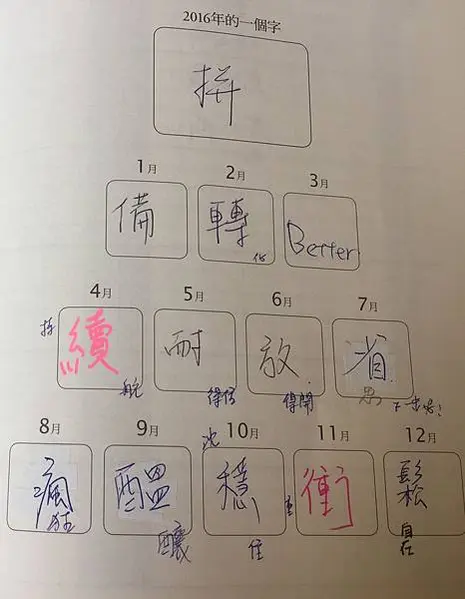 2016年的一個字
拼
1月 2月 3月
備 轉化 Better
4月 5月 6月 7月
持續航 耐得信 放得開 省思
8月 9月 10月 11月 12月
瘋狂 醞釀 沈穩住 衝 鬆自在